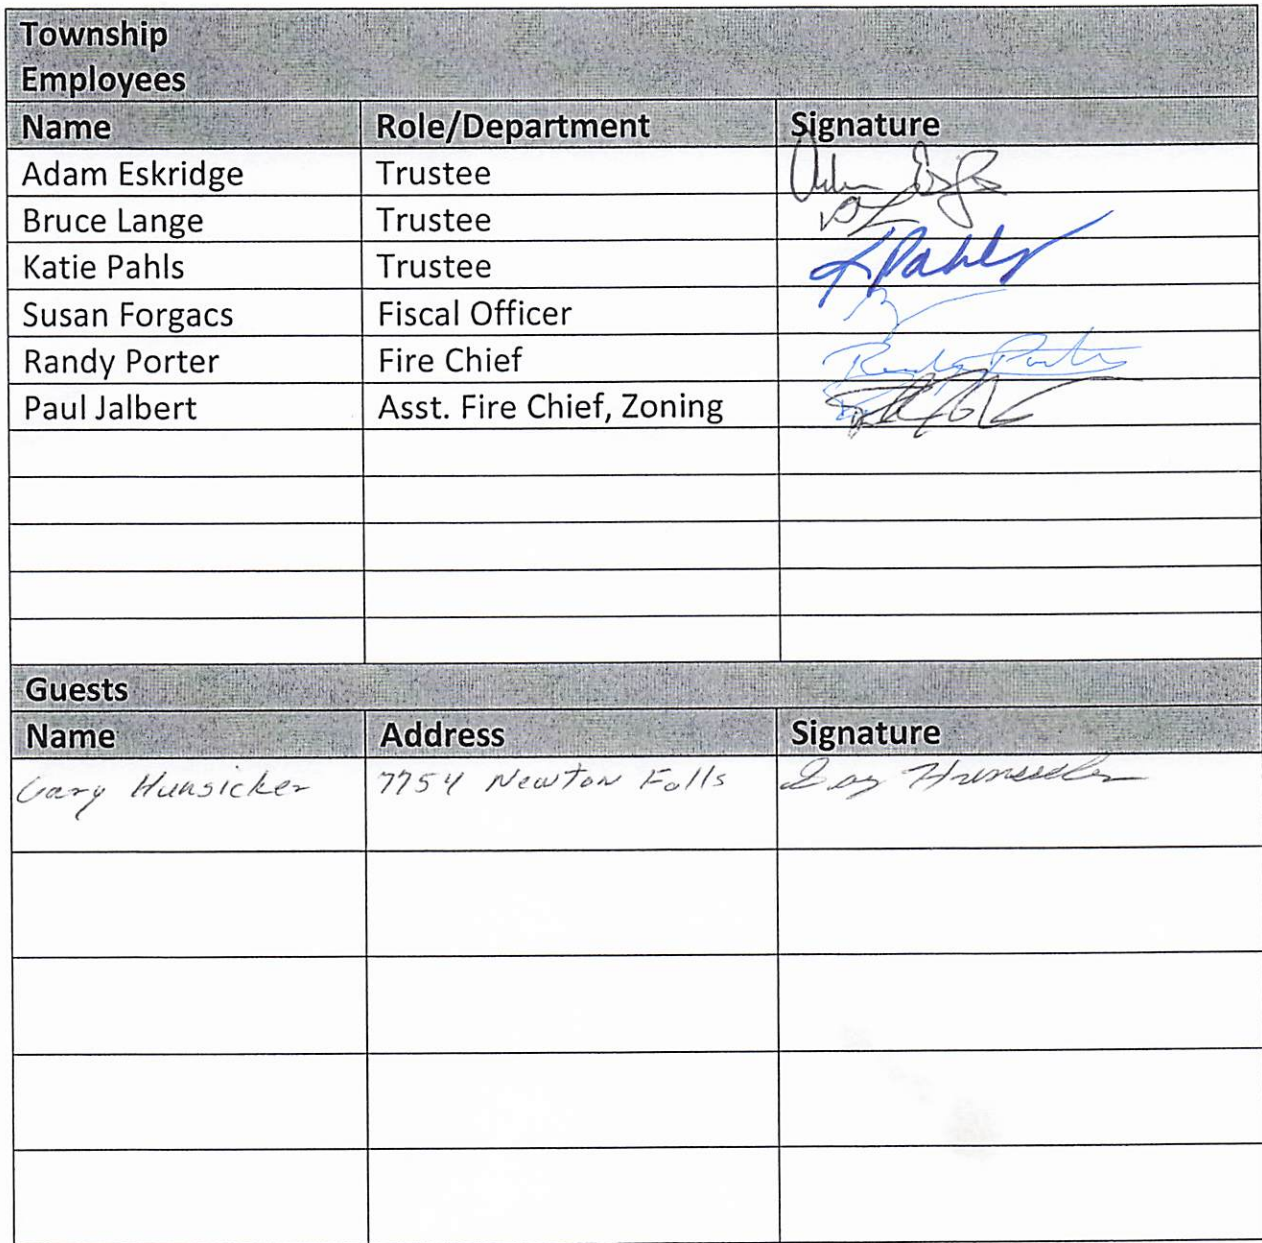 Township
Employees
Name Role/Department Signature
Adam Eskridge Trustee
Bruce Lange Trustee
Katie Pahls Trustee K Pahls
Susan Forgacs Fiscal Officer
Randy Porter Fire Chief Randy Porter
Paul Jalbert Asst. Fire Chief, Zoning
Guests
Name Address Signature
Gary Hunsicker 7754 Newton Falls Gary Hunsicker